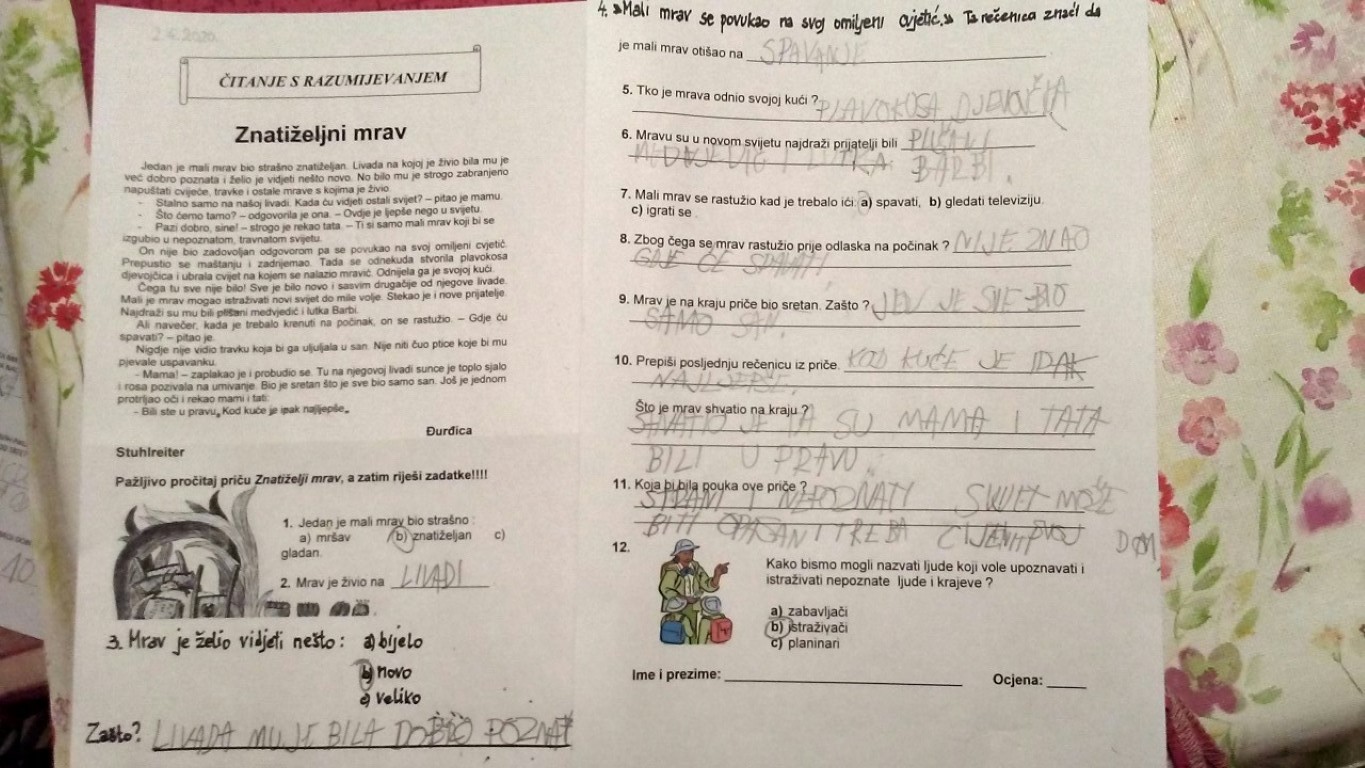 2.6.2020.
ČITANJE S RAZUMIJEVANJEM
Znatiželjni mrav
Jedan je mali mrav bio strašno znatiželjan. Livada na kojoj je živio bila mu je
već dobro poznata i želio je vidjeti nešto novo. No bilo mu je strogo zabranjeno
napuštati cvijeće, travke i ostale mrave s kojima je živio.
- Stalno samo na našoj livadi. Kada ću vidjeti ostali svijet? – pitao je mamu.
- Što ćemo tamo? – odgovorila je ona. – Ovdje je ljepše nego u svijetu.
- Pazi dobro, sine! – strogo je rekao tata. – Ti si samo mali mrav koji bi se
izgubio u nepoznatom, travnatom svijetu.
On nije bio zadovoljan odgovorom pa se povukao na svoj omiljeni cvjetić.
Prepustio se maštanju i zadrijemao. Tada se odnekuda stvorila plavokosa
djevojčica i ubrala cvijet na kojem se nalazio mravić. Odnijela ga je svojoj kući.
Čega tu sve nije bilo! Sve je bilo novo i sasvim drugačije od njegove livade.
Mali je mrav mogao istraživati novi svijet do mile volje. Stekao je i nove prijatelje.
Najdraži su mu bili plišani medvjedić i lutka Barbi.
Ali navečer, kada je trebalo krenuti na počinak, on se rastužio. – Gdje ću
spavati? – pitao je.
Nigdje nije vidio travku koja bi ga uljuljala u san. Nije niti čuo ptice koje bi mu
pjevale uspavanku.
- Mama! – zaplakao je i probudio se. Tu na njegovoj livadi sunce je toplo sjalo
i rosa pozivala na umivanje. Bio je sretan što je sve bio samo san. Još je jednom
protrljao oči i rekao mami i tati:
- Bili ste u pravu. Kod kuće je ipak najljepše.
Đurđica
Stuhlreiter
Pažljivo pročitaj priču Znatiželji mrav, a zatim riješi zadatke!!!!
1. Jedan je mali mrav bio strašno :
a) mršav b) znatiželjan c)
gladan.
2. Mrav je živio na LIVADI
3. Mrav je želio vidjeti nešto: a) bijelo
b) novo
c) veliko
Zašto? LIVADA MU JE BILA DOBRO POZNAT
4. »Mali mrav se povukao na svoj omiljeni cvjetić.» Ta rečenica znači da
je mali mrav otišao na SPAVANJE
5. Tko je mrava odnio svojoj kući ? PLAVOKOSA DJEVOJČICA
6. Mravu su u novom svijetu najdraži prijatelji bili PLIŠANI
MEDVJEDIĆ I LUTKA BARBI.
7. Mali mrav se rastužio kad je trebalo ići: a) spavati, b) gledati televiziju.
c) igrati se .
8. Zbog čega se mrav rastužio prije odlaska na počinak ? NIJE ZNAO
GDJE ĆE SPAVATI
9. Mrav je na kraju priče bio sretan. Zašto ? JER JE SVE BIO
SAMO SAN.
10. Prepiši posljednju rečenicu iz priče. KOD KUĆE JE IPAK
NAJLJEPŠE.
Što je mrav shvatio na kraju ?
SHVATIO JE DA SU MAMA I TATA
BILI U PRAVU.
11. Koja bi bila pouka ove priče ?
STRANI I NEPOZNATI SVIJET MOŽE
BITI OPASAN TREBA CIJENITI SVOJ DOM
12.
Kako bismo mogli nazvati ljude koji vole upoznavati i
istraživati nepoznate ljude i krajeve ?
a) zabavljači
b) istraživači
c) planinari
Ime i prezime:
Ocjena:
10